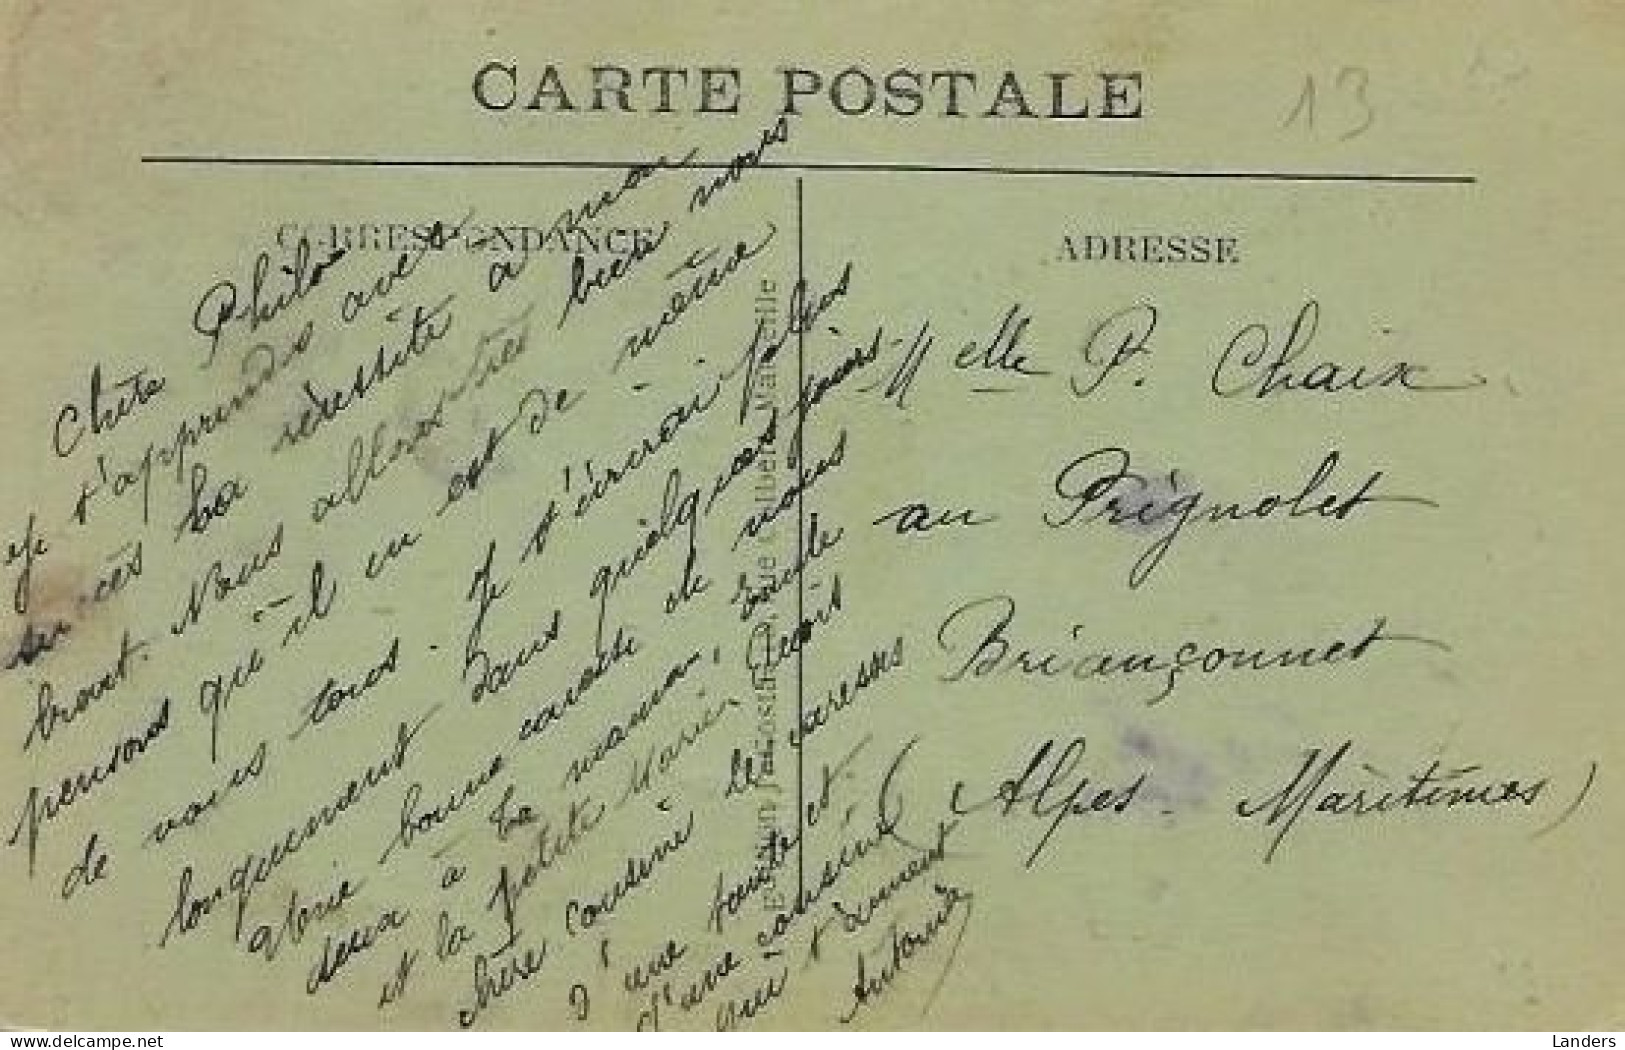 CARTE POSTALE
13
CORRESPONDANCE
ADRESSE
Chère Philo
je t'apprends avec
succès ta réussite à mon
brevet. Nous allons très bien nous
pensons qu'il en est de même
de vous tous. Je t'écrirai plus
longuement dans quelques jours
bonne caresse de nous
deux à ta maman, Emile
et la petite Marie. Reçois
chère cousine les caresses
d'une tante et
d'une cousine
qui t'aiment
Antonie
Melle P. Chaix
au Prignolet
Briançonnet
(Alpes-Maritimes)
delcampe.net
Landers